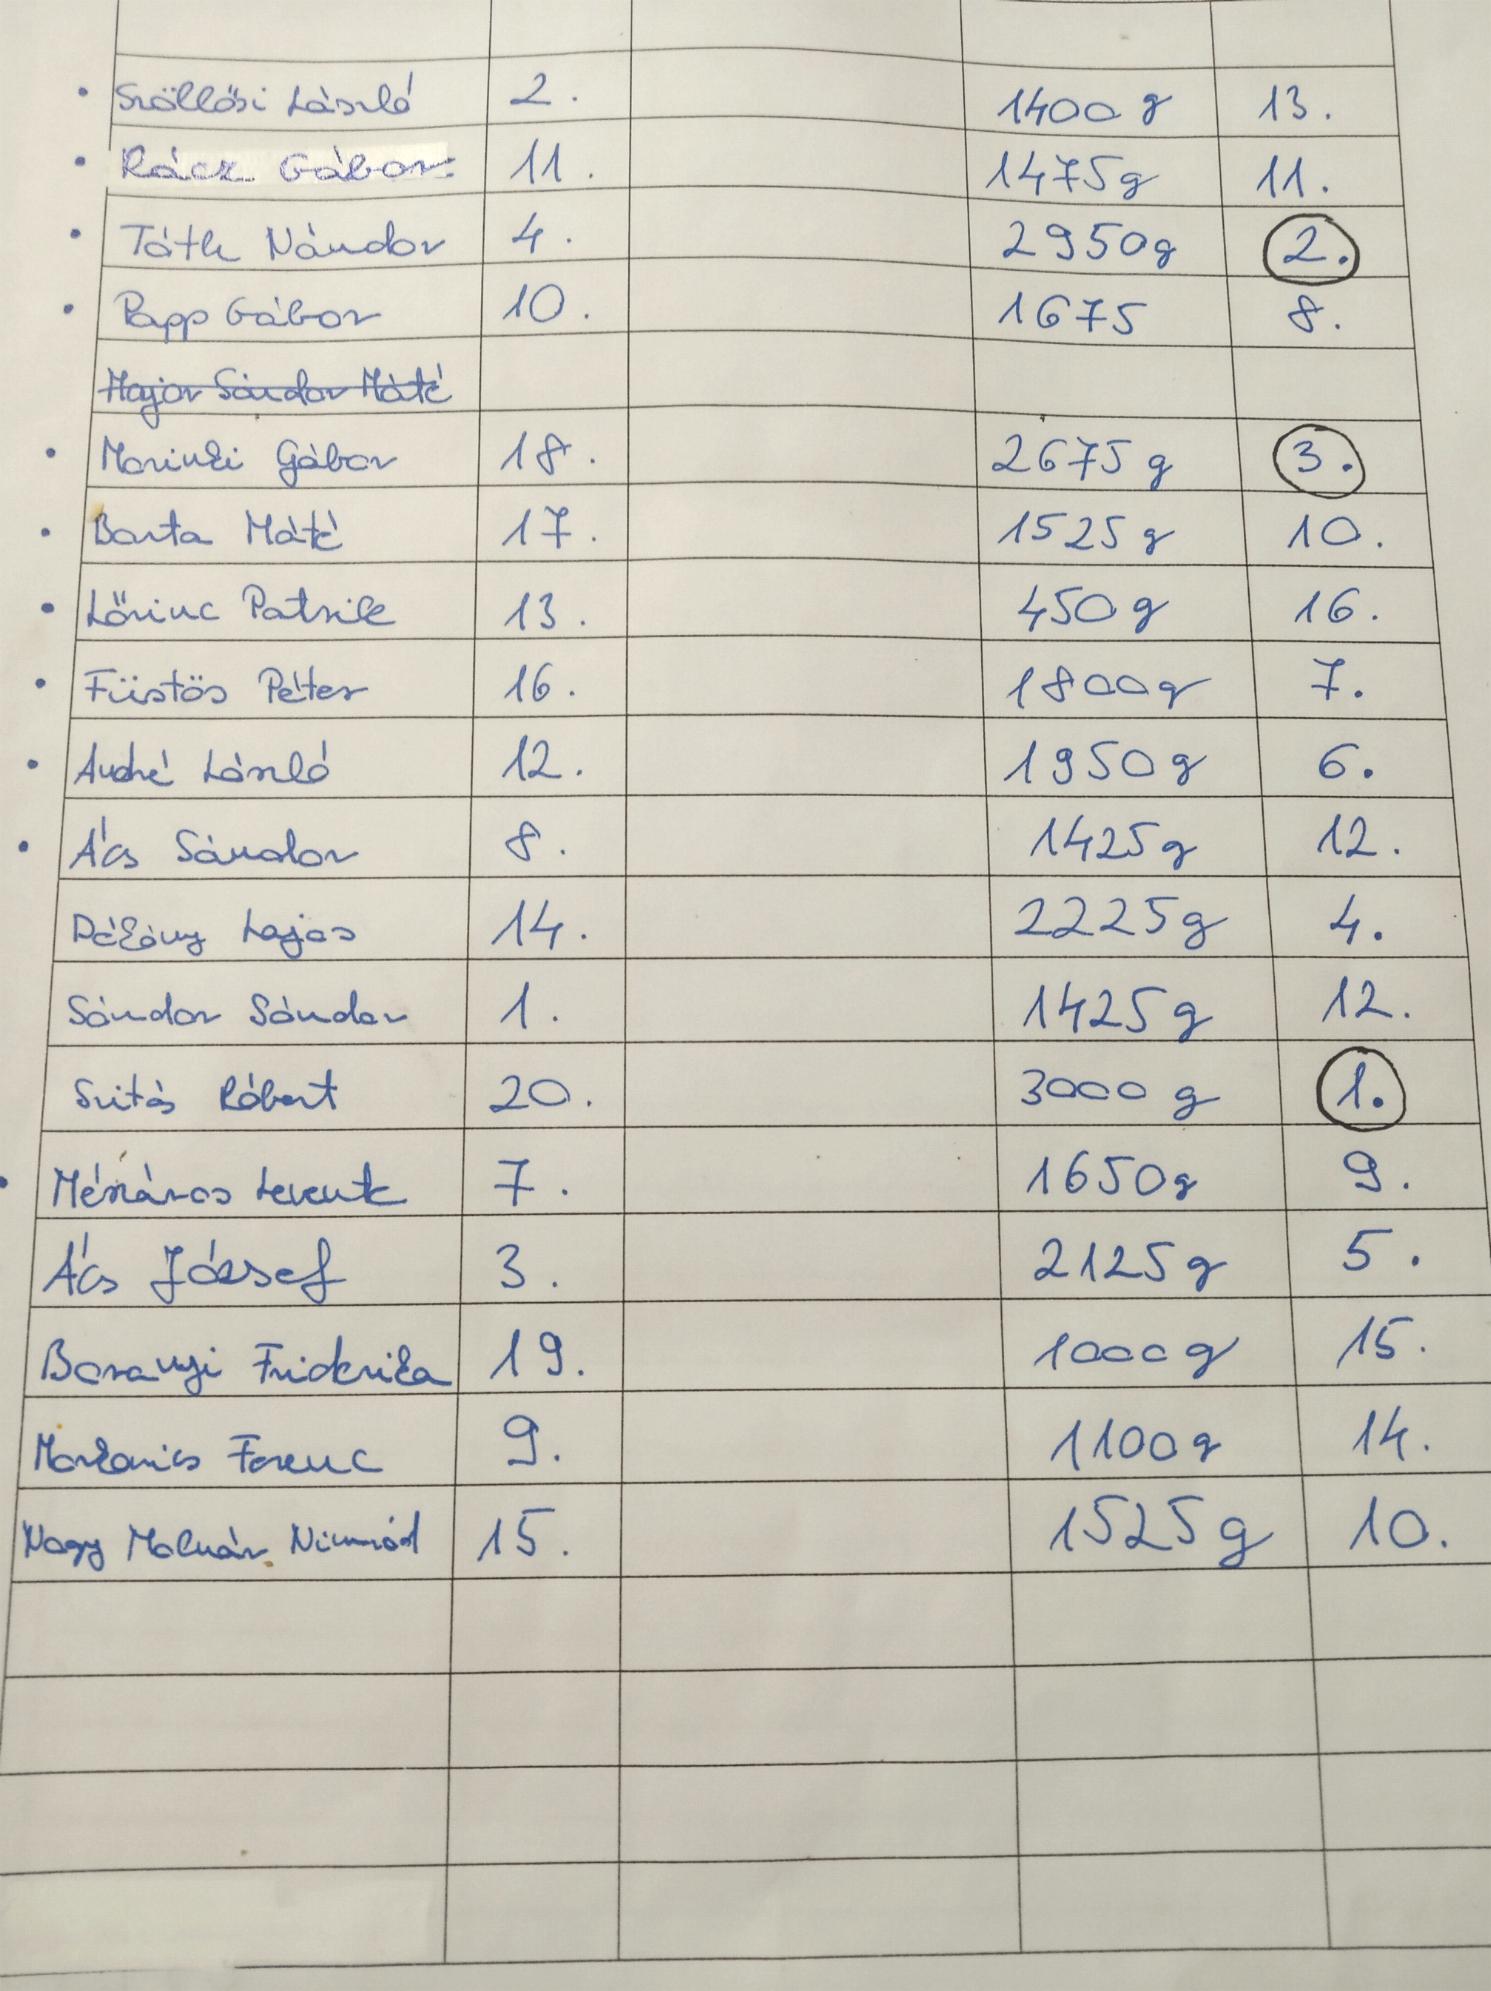 Szöllősi László 2. 1400 g 13.
Rácz Gábor 11. 1475g 11.
Tóth Nándor 4. 2950g 2.
Papp Gábor 10. 1675 8.
Major Sándor Máté
Gábor 18. 2675 g 3.
Barta Máté 17. 1525 g 10.
Lőrinc Patrik 13. 450 g 16.
Füstös Péter 16. 1800g 7.
André László 12. 1950g 6.
Ács Sándor 8. 1425g 12.
Lajos 14. 2225g 4.
Sándor Sándor 1. 1425g 12.
Szitás Róbert 20. 3000 g 1.
Mészáros Levente 7. 1650g 9.
Ács József 3. 2125g 5.
Baranyi Friderika 19. 1000g 15.
Ferenc 9. 1100g 14.
Nagy Molnár Nimród 15. 1525g 10.